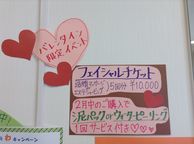 バレンタイン
限定イベント
フェイシャルチケット
5回分 ¥10,000
2月中のご購入で
泥パック or ウォーターピーリング
1回サービス付き♡♡♡
キャンペーン